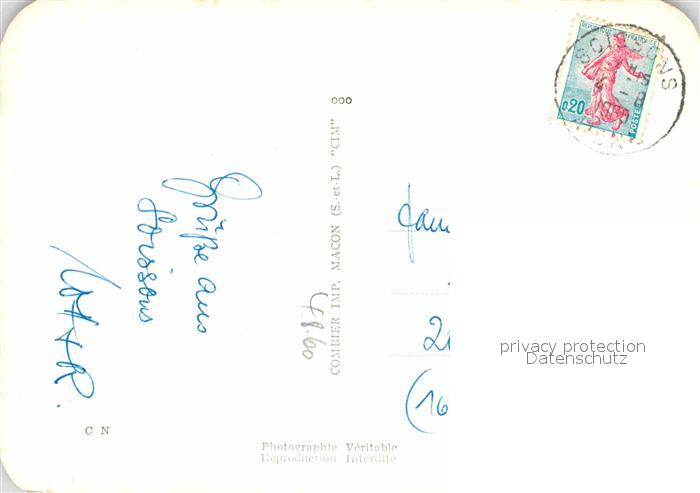 REPUBLIQUE FRANÇAISE
0,20
POSTES
SOISSONS
Grüße aus
Soissons
LOTHAR.
COMBIER IMP. MACON (S.-et-L.) "CIM"
4.8.60
C N
Photographie Véritable
Reproduction Interdite
(16
privacy protection
Datenschutz